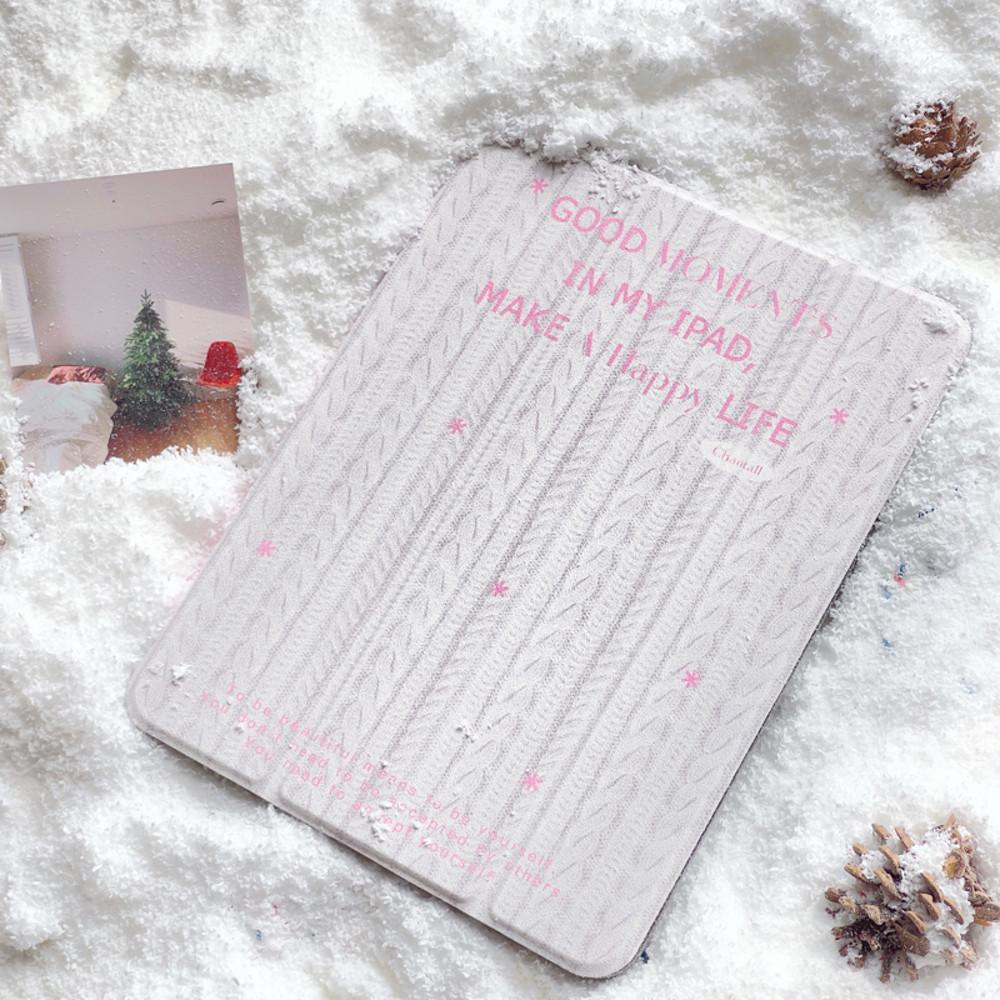 GOOD MOMENTS
IN MY IPAD,
MAKE A Happy LIFE
Chantall
To be beautiful means to be yourself.
You don't need to be accepted by others.
You need to accept yourself.